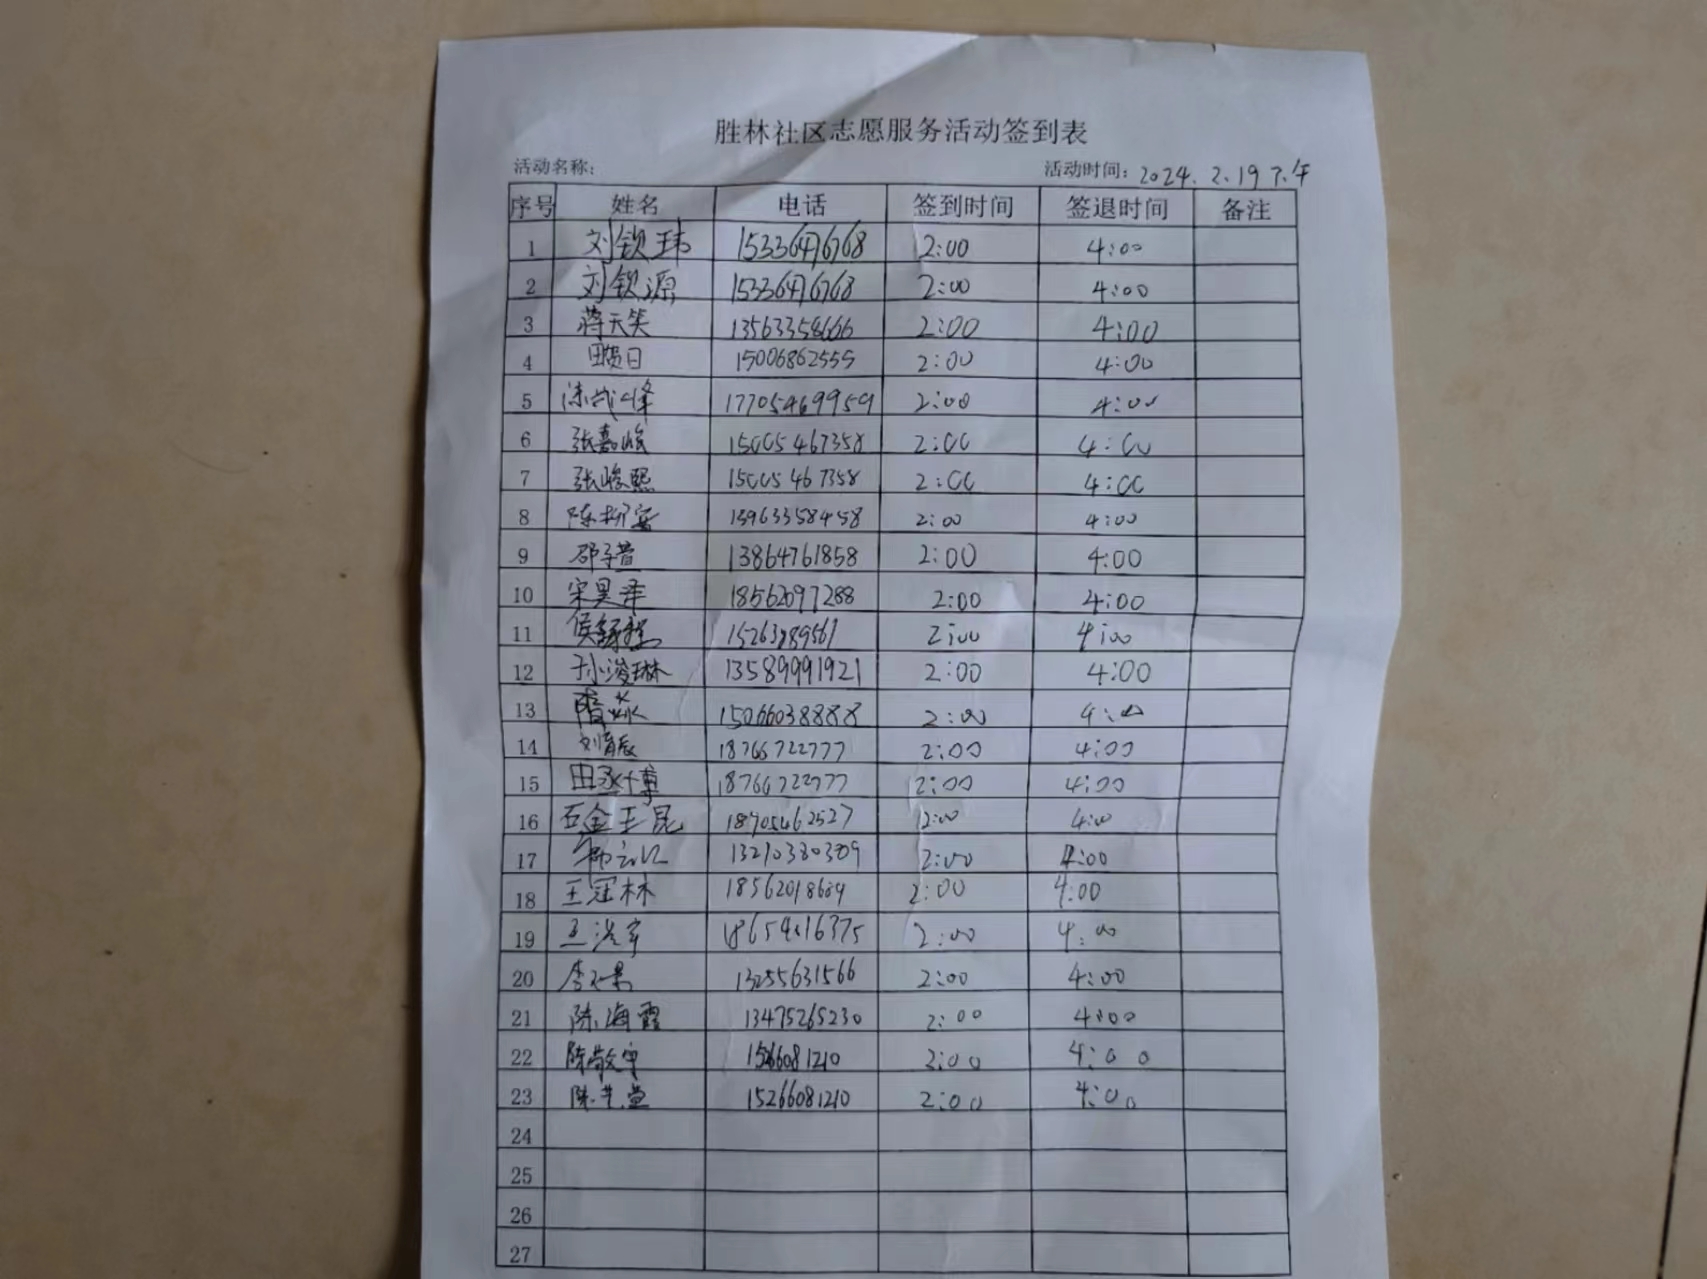 胜林社区志愿服务活动签到表
活动名称: 活动时间: 2024. 2.19 下午
序号 姓名 电话 签到时间 签退时间 备注
1 刘钦玮 15336476768 2:00 4:00
2 刘钦源 15336476768 2:00 4:00
3 蒋天笑 13563358666 2:00 4:00
4 15006862555 2:00 4:00
5 17705469959 2:00 4:00
6 张嘉峻 15005467358 2:00 4:00
7 张峻熙 15005467358 2:00 4:00
8 陈柳安 13963358458 2:00 4:00
9 邵子萱 13864761858 2:00 4:00
10 宋昊泽 18562097288 2:00 4:00
11 15263889561 2:00 4:00
12 孙浚琳 13589991921 2:00 4:00
13 15066038888 2:00 4:00
14 18766722777 2:00 4:00
15 田丞博 18766722777 2:00 4:00
16 石金玉昆 18705462527 2:00 4:00
17 13210380389 2:00 4:00
18 王冠林 2:00 4:00
19 王浩宇 2:00 4:00
20 13255631566 2:00 4:00
21 陈海霞 13475265230 2:00 4:00
22 陈敬宇 2:00 4:00
23 15266081210 2:00 4:00
24
25
26
27